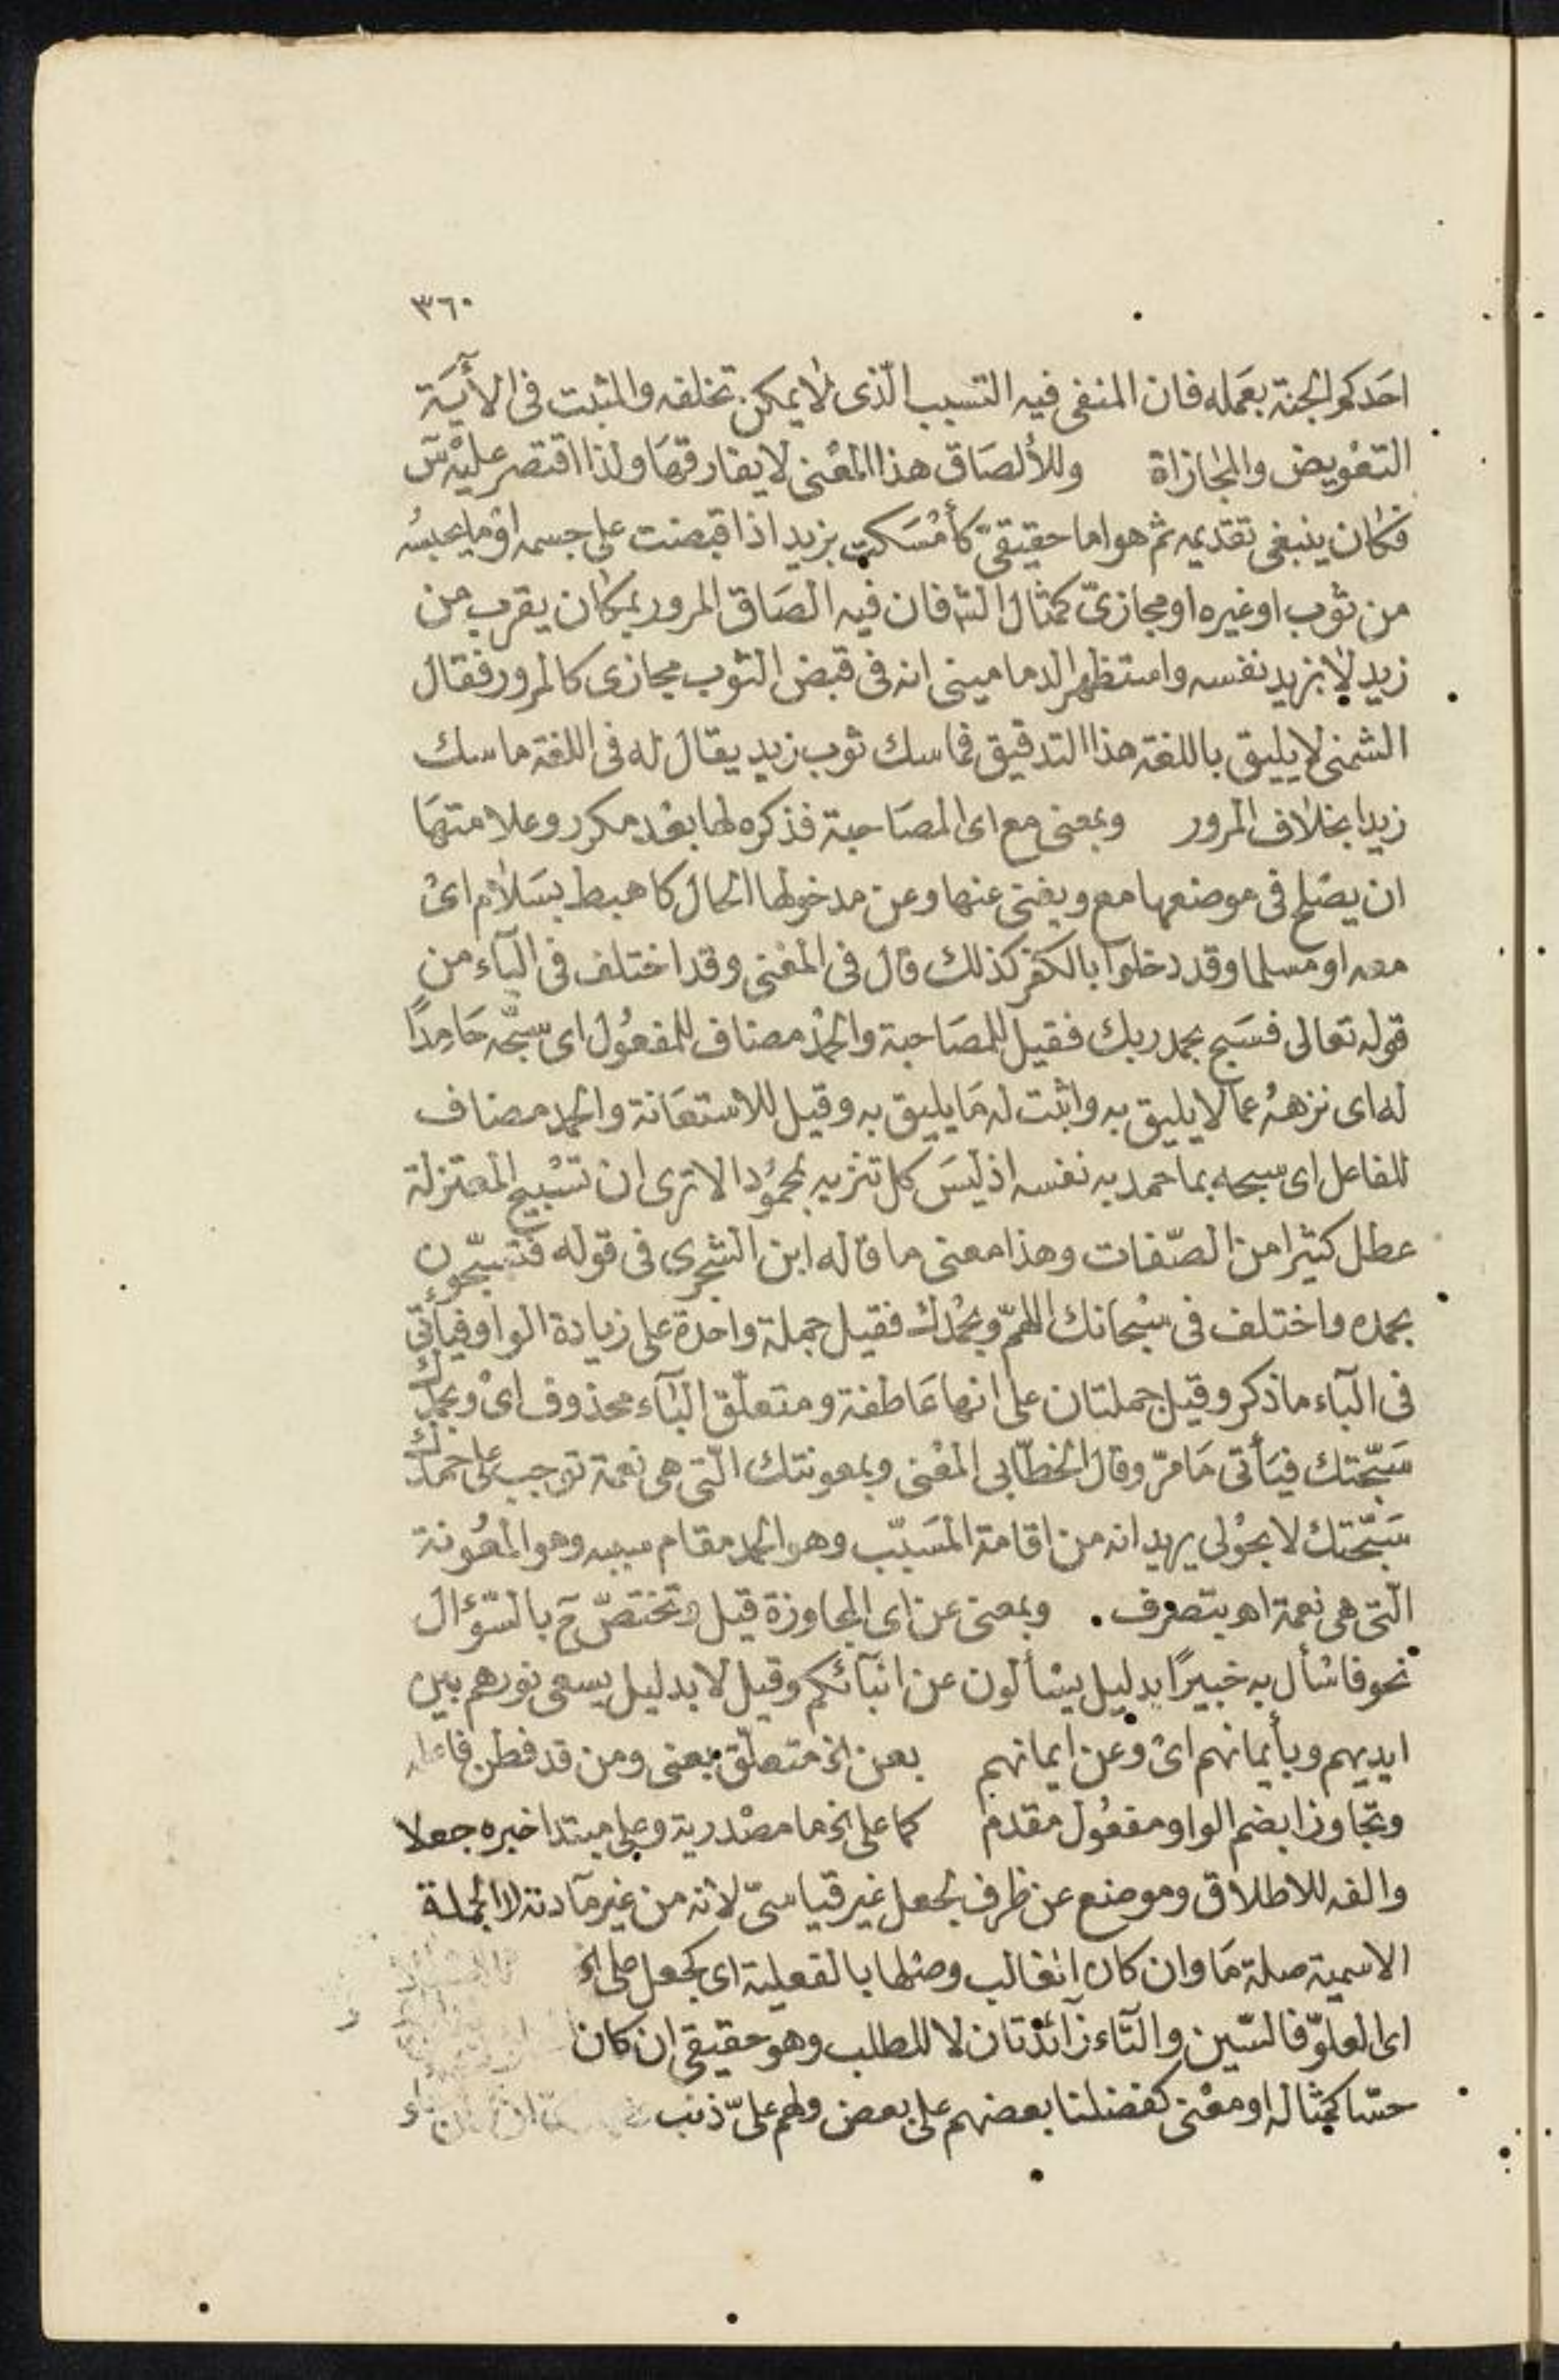 ٣٦٠
احدكم الجنة بعمله فان المنفى فيه التسبب الّذى لا يمكن تخلفه والمثبت فى الأيَة
التعويض والمجازاة وللألصَاق هذا المعْنى لا يفارقهَا ولذا اقتصر عليْه س
فكان ينبغى تقديمه ثم هو اما حقيقىّ كأمْسَكت بزيد اذا قبضت على جسمه اوْ ما يحبسُه
من ثوب اوغيره او مجازىّ كمثال الش فان فيه الصَاق المرور بمكان يقرب من
زيد لا بزيد نفسه واستظهر الدمامينى انه فى قبض الثوب مجازى كالمرور فقال
الشمنى لا يليق باللغة هذا التدقيق فماسك ثوب زيد يقال له فى اللغة ماسك
زيدا بخلاف المرور وبمعنى مع اى المصَاحبة فذكره لها بعْد مكرر وعلامتهَا
ان يصْلح فى موضعها مع ويغنى عنها وعن مدخولها الحال كاهبط بسَلام اىْ
معه او مسلما وقد دخلوا بالكفر كذلك قال فى المغْنى وقد اختلف فى البآء من
قوله تعالى فسَبح بحمد ربك فقيل للمصَاحبة والحمْدُ مضاف للمفعُول اى سبّحه حَامِدًا
له اى نزههُ عما لا يليق به واثبت له مَا يليق به وقيل للاستعَانة والحمد مضاف
للفاعل اى سبحه بما حمد به نفسه اذ ليسَ كل تنزيه بمحمُود الا ترى ان تسْبيح المعتزلة
عطل كثيرا من الصّفات وهذا معنى ما قاله ابن الشجرى فى قوله فتسبّحون
بحمده واختلف فى سبْحانك اللهمّ وبحمْدك فقيل جملة واحدة على زيادة الواو فيأتى
فى البآء ما ذكر وقيل جملتان على انها عَاطفة ومتعلّق البآء محذوف اىْ وبحمدك
سَبّحتك فيَأتى مَا مرّ وقال الخطّابى المعْنى وبمعونتك الّتى هى نعمة توجب علىّ حمدك
سَبّحتك لا بحوْلى يريد انه من اقامة المسَبّب وهو الحمد مقام سببه وهو المعُونة
الّتى هى نعمة اهـ بتصرف . وبمعنى عن اى المجاوزة قيل وتختصّ ح بالسّؤال
نحو فاسْأل به خبيرًا بدليل يسْألون عن انبآئكم وقيل لا بدليل يسعى نورهم بين
ايديهم وبأيمانهم اىْ وعن ايمانهم بعن الخ متعلّق بمعنى ومن قد فطن فاعله
وتجاوزا بضم الواو مفعُول مقدم كما على الخ ما مصْدرية وعلى مبتدا خبره جعلا
والفه للاطلاق وموضع عن ظرف لجعل غير قياسىّ لانه من غير مآدته لا الجملة
الاسمية صلة مَا وان كان الغالب وصْلها بالفعلية اى كجعل على الخ
اى العلوّ فالسّين والتّاء زآئدتان لا للطلب وهو حقيقى ان كان
حسّا كمثاله او معْنى كفضلنا بعضهم على بعض ولهم علىّ ذنب